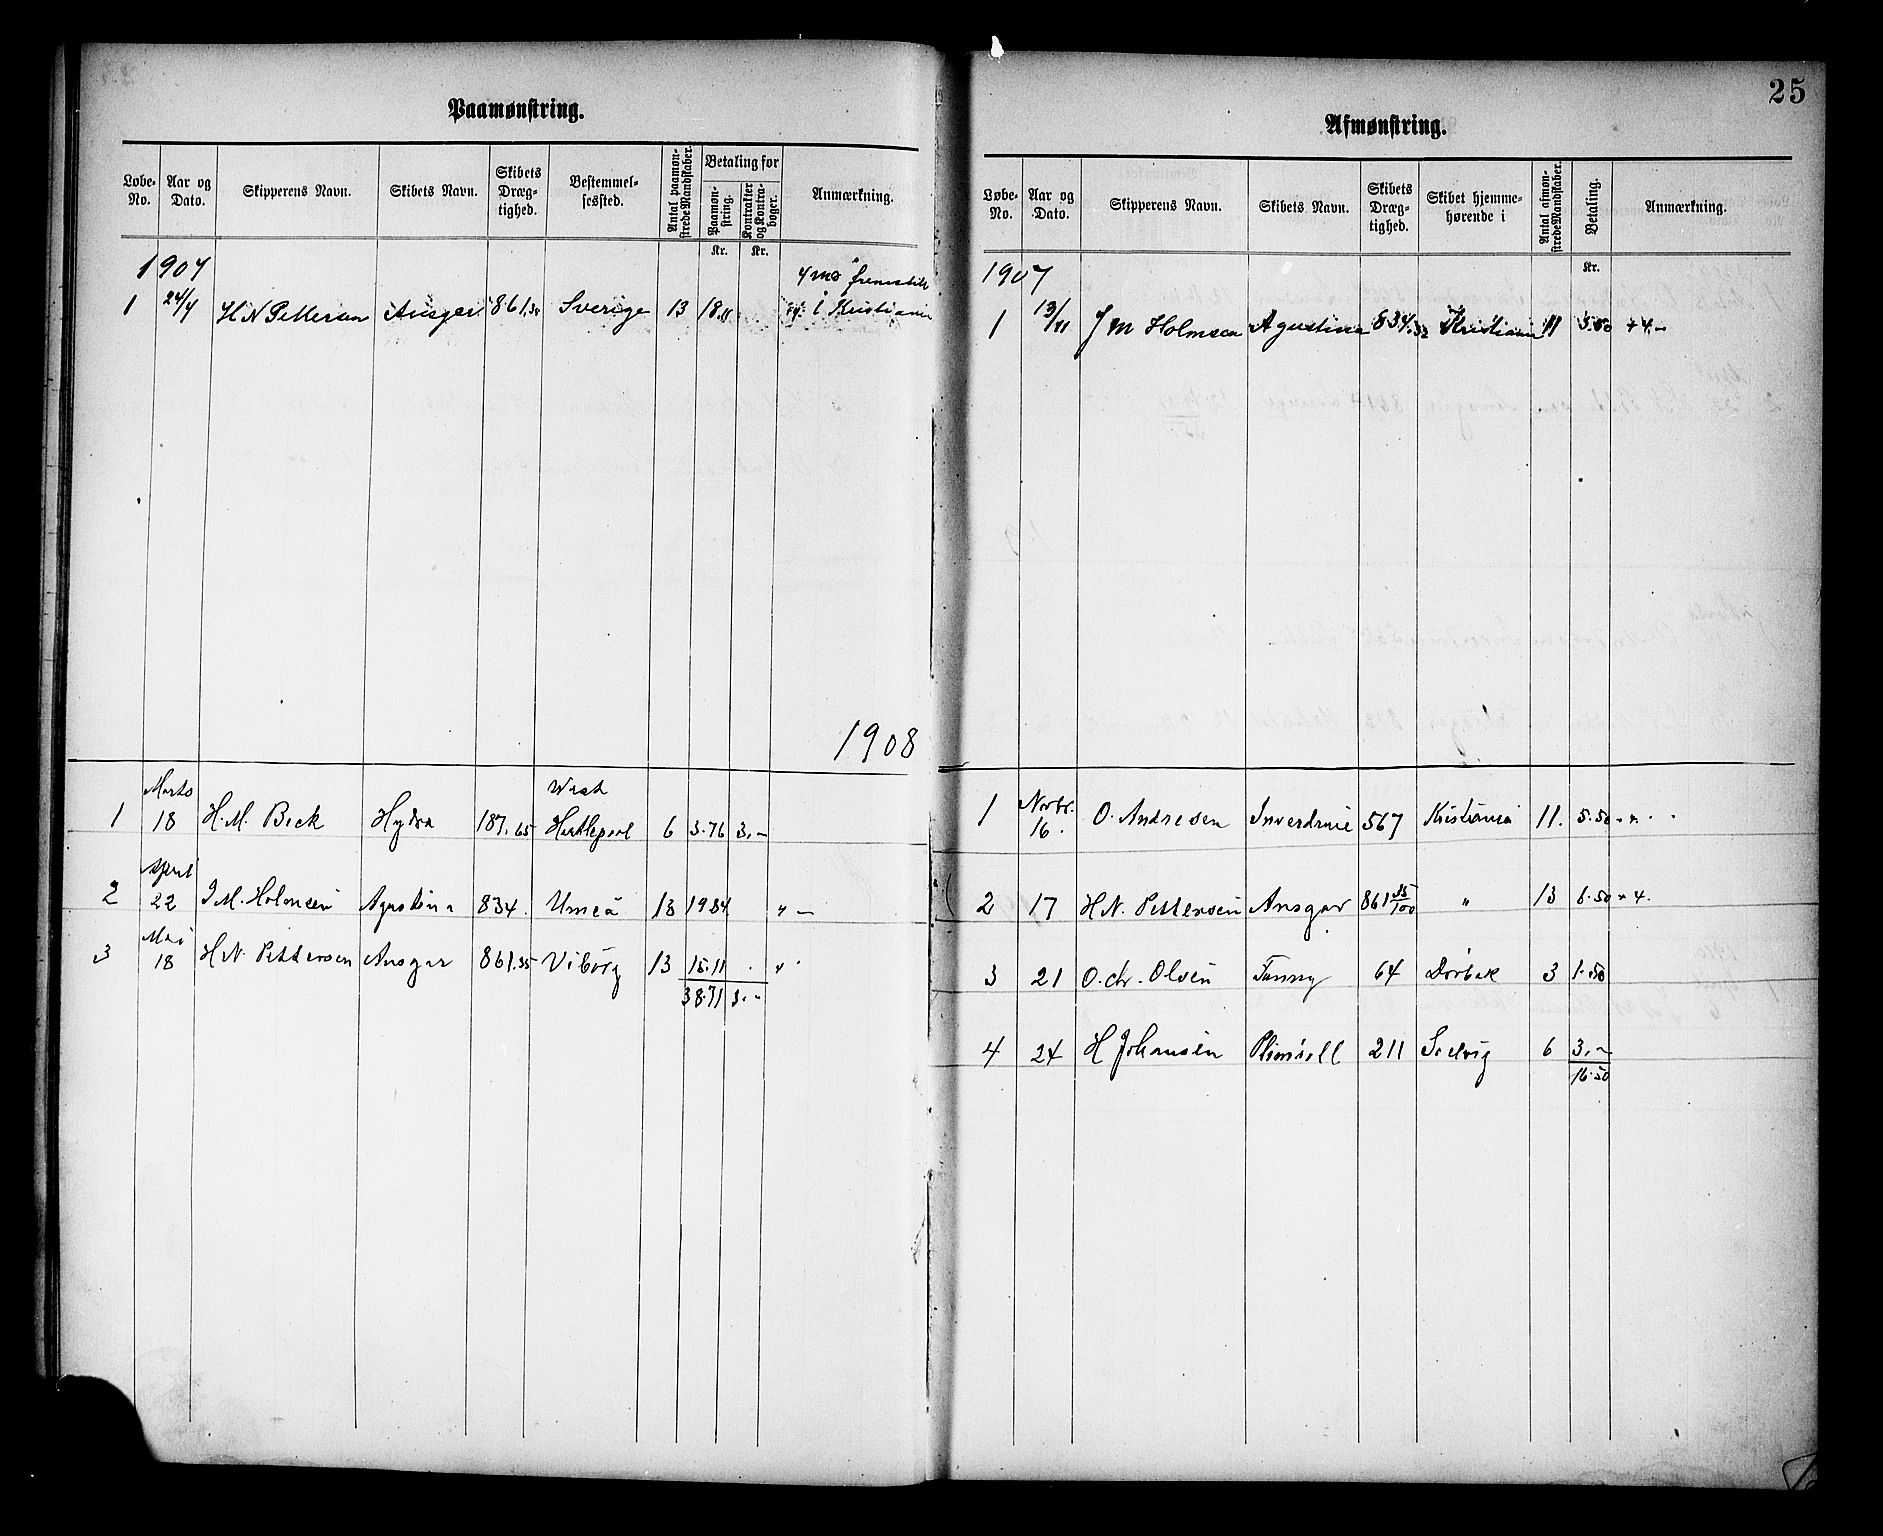 25
Paamønstring.
Løbe-No. Aar og Dato. Skipperens Navn. Skibets Navn. Skibets Dræg-tighed. Bestemmel-sessted. Antal paamøn-strede Mandskaber. Betaling for Paamøn-string. Kontrakter og Kontra-bøger. Anmærkning.
Kr. Kr.
1907
1 24/4 H N Pettersen Ansgar 861.35 Sverige 13 18.11 i Kristiania
1908
1 Marts 18 H. M. Beck Hydra 187.65 West Hartlepool 6 3.76 3.-
2 April 22 J. M. Holmsen Agustina 834. Umeå 13 19.84 " -
3 Mai 18 H. N. Pettersen Ansgar 861.35 Viborg 13 15.11 "
38.71 3.-
Afmønstring.
Løbe-No. Aar og Dato. Skipperens Navn. Skibets Navn. Skibets Dræg-tighed. Skibet hjemme-hørende i Antal afmøn-strede Mandskaber. Betaling. Anmærkning.
Kr.
1907
1 13/11 J M Holmsen Agustina 834.32 Kristiania 11 5.50 + 4.-
1 Novbr. 16. O. Andresen Inverdruie 567 Kristiania 11. 5.50
2 17 H N. Pettersen Ansgar 861 35/100 " 13 6.50 + 4.
3 21 O. Chr. Olsen Fanny 64 Drøbak 3 1.50
4 24 H Johansen 211 Solvig 6 3.-
16.50